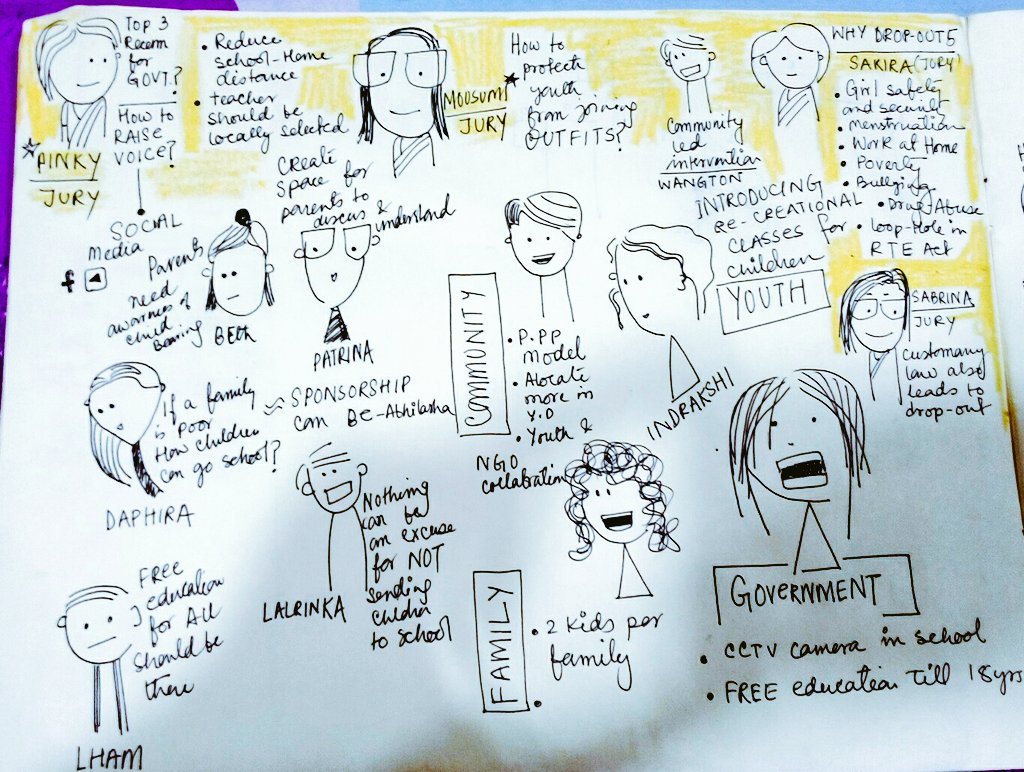 TOP 3
Recom
for
GOVT.?
How to
RAISE
VOICE?
PINKY
JURY
SOCIAL
Media
f
• Reduce
school-Home
distance
• teacher
should be
locally selected
MOUSUMI
JURY
How to
protect
youth
from joining
OUTFITS?
Community
led
intervention
WANGTON
WHY DROP-OUTS
SAKIRA (JURY)
• Girl safety
and security
• Menstruation
• Work at Home
• Poverty
• Bullying
• Drug Abuse
• loop-Hole in
RTE Act
Create
space for
parents to
discuss &
understand
PATRINA
Parents
need
awarness of
child
Bearing
INTRODUCING
RE-CREATIONAL
CLASSES for
children
YOUTH
SABRINA
JURY
Customary
law also
leads to
drop-out
COMMUNITY
• P.PP
model
• Alocate
more in
Y.D
• Youth &
NGO
collabration
INDRAKSHI
If a family
is poor
How children
can go school?
DAPHIRA
≈ SPONSORSHIP
can Be-Abhilasha
Nothing
can be
an excuse
for NOT
sending
children
to school
LALRINKA
FREE
education
for All
should be
there
LHAM
FAMILY
• 2 Kids per
family
•
GOVERNMENT
• CCTV camera in school
• FREE education Till 18yrs